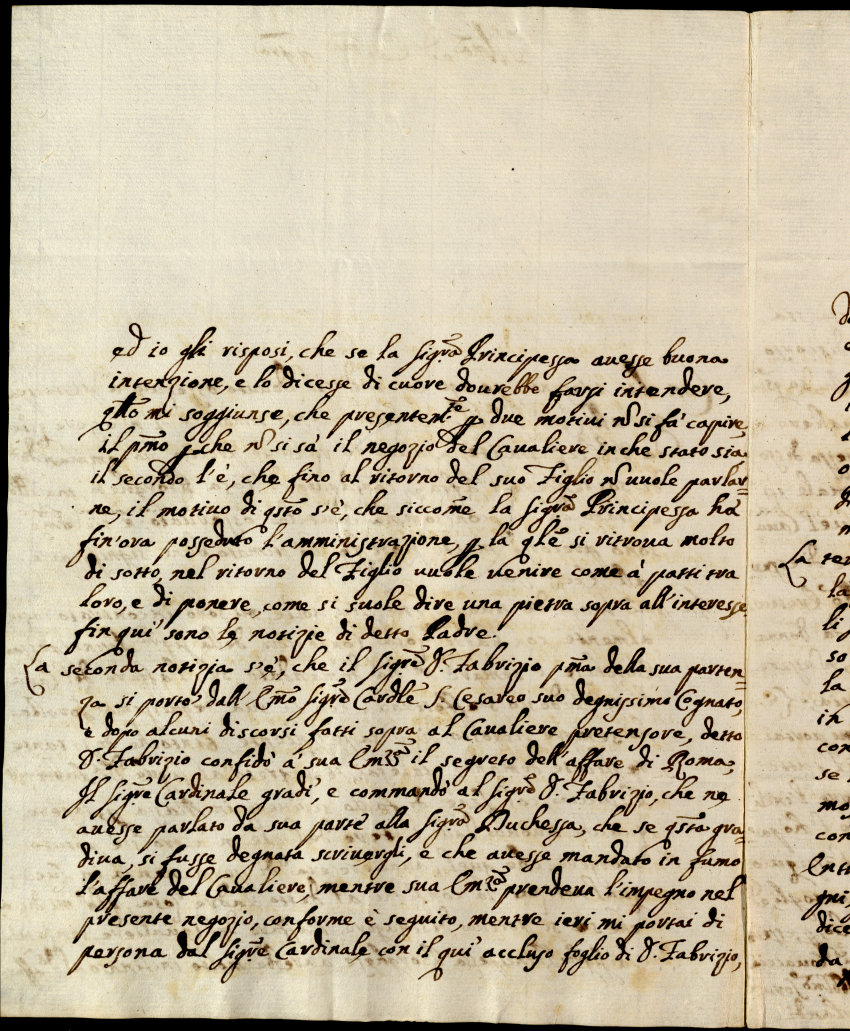 ed io gli risposi, che se la Sigr̃a Principessa auesse buona
intenzione, e lo dicesse di cuore dourebbe farsi intendere,
q̃sto mi soggiunse, che presentem̃te p due motiui nõ si fà capire,
il p̃mo p che nõ si sà il negozio del Caualiere in che stato sia
il secondo l'è, che fino al ritorno del suo Figlio nõ uuole parlar=
ne, il motiuo di q̃sto s'è, che siccom̃e la Sigr̃a Principessa hà
fin'ora posseduto l'amministrazione, p la q̃le si ritroua molto
di sotto, nel ritorno del Figlio uuole uenire come à patti tra
loro, e di ponere, come si suole dire una pietra sopra all'interesse
fin qui' sono le notizie di detto Padre.
La seconda notizia s'è, che il Sigr̃e D. Fabrizio p̃ma della sua parten=
za si portò dall' Em̃o Sigr̃e Cardl̃e S. Cesareo suo degnissimo Cognato,
e dopo alcuni discorsi fatti sopra al Caualiere pretensore, detto
D. Fabrizio confidò à sua Em̃za il segreto dell'affare di Roma,
Il Sigr̃e Cardinale gradì, e commandò al Sigr̃e D. Fabrizio, che ne
auesse parlato da sua parte alla Sigr̃a Duchessa, che se q̃sta gra=
diua, si fusse degnata scriuergli, e che auesse mandato in fumo
l'affare del Caualiere, mentre sua Em̃za prendeua l'impegno nel
presente negozio, conforme è seguito, mentre ieri mi portai di
persona dal Sigr̃e Cardinale con il qui' accluso foglio di D. Fabrizio,